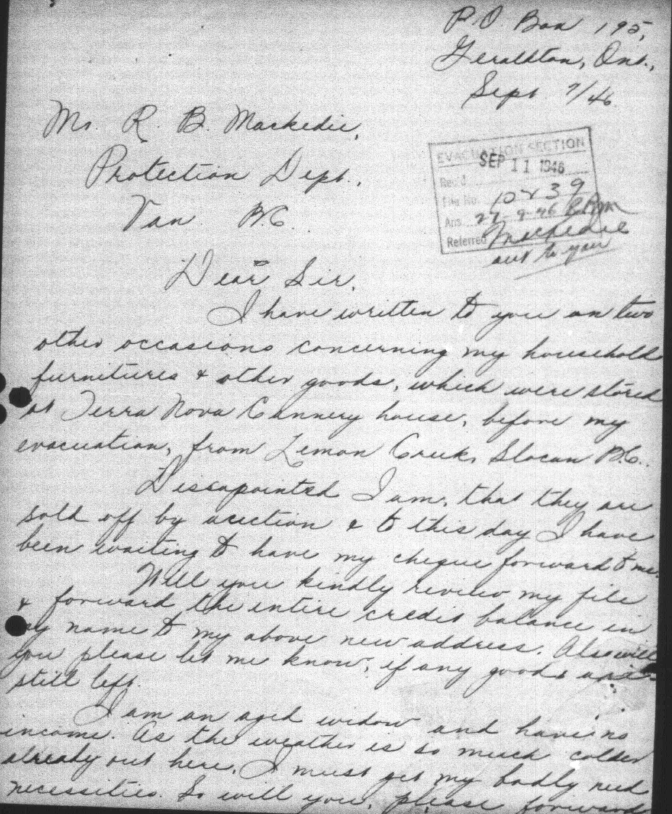 P.O. Box 195,
Geraldton, Ont.,
Sept 7/46
Mr. R. B. Mackedie,
Protection Dept.,
Van B.C.
EVACUATION SECTION
SEP 11 1946
Rec'd
File No. 10239
Ans. 27-9-46 RPM
Referred Mackedie
out to you
Dear Sir,
I have written to you on two
other occasions concerning my household
furnitures & other goods, which were stored
at Terra Nova Cannery house, before my
evacuation, from Lemon Creek, Slocan B.C.
Dissapointed I am, that they are
sold off by auction & to this day I have
been waiting to have my cheque forward to me.
Will you kindly review my file
& forward the entire credit balance in
my name to my above new address. Also will
you please let me know, if any goods are
still left.
I am an aged widow and have no
income. As the weather is so much colder
already out here, I must get my badly need
necessities. So will you, please forward